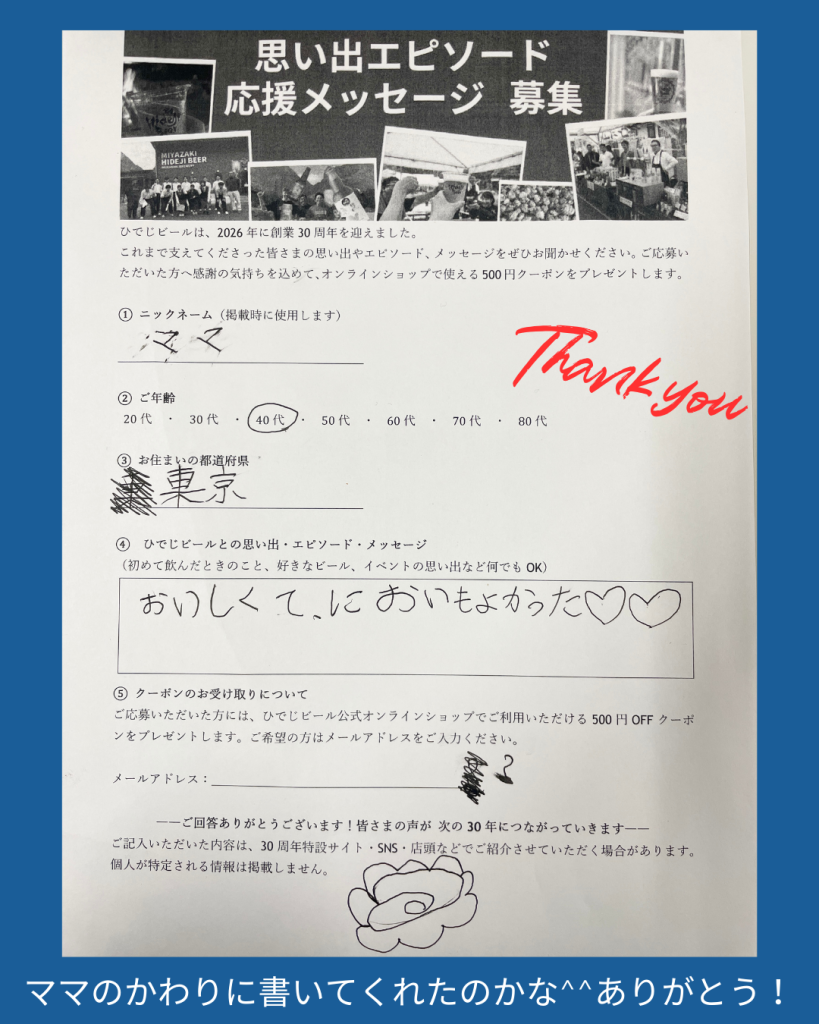 思い出エピソード
応援メッセージ 募集
MIYAZAKI
HIDEJI BEER
ひでじビールは、2026年に創業30周年を迎えました。
これまで支えてくださった皆さまの思い出やエピソード、メッセージをぜひお聞かせください。ご応募い
ただいた方へ感謝の気持ちを込めて、オンラインショップで使える500円クーポンをプレゼントします。
① ニックネーム（掲載時に使用します）
ママ
Thank you
② ご年齢
20代 ・ 30代 ・ 40代 ・ 50代 ・ 60代 ・ 70代 ・ 80代
③ お住まいの都道府県
東京
④ ひでじビールとの思い出・エピソード・メッセージ
（初めて飲んだときのこと、好きなビール、イベントの思い出など何でもOK）
おいしくて、においもよかった♡♡
⑤ クーポンのお受け取りについて
ご応募いただいた方には、ひでじビール公式オンラインショップでご利用いただける500円OFFクーポ
ンをプレゼントします。ご希望の方はメールアドレスをご入力ください。
メールアドレス：
?
――ご回答ありがとうございます！皆さまの声が 次の30年につながっていきます――
ご記入いただいた内容は、30周年特設サイト・SNS・店頭などでご紹介させていただく場合があります。
個人が特定される情報は掲載しません。
ママのかわりに書いてくれたのかな^^ありがとう！